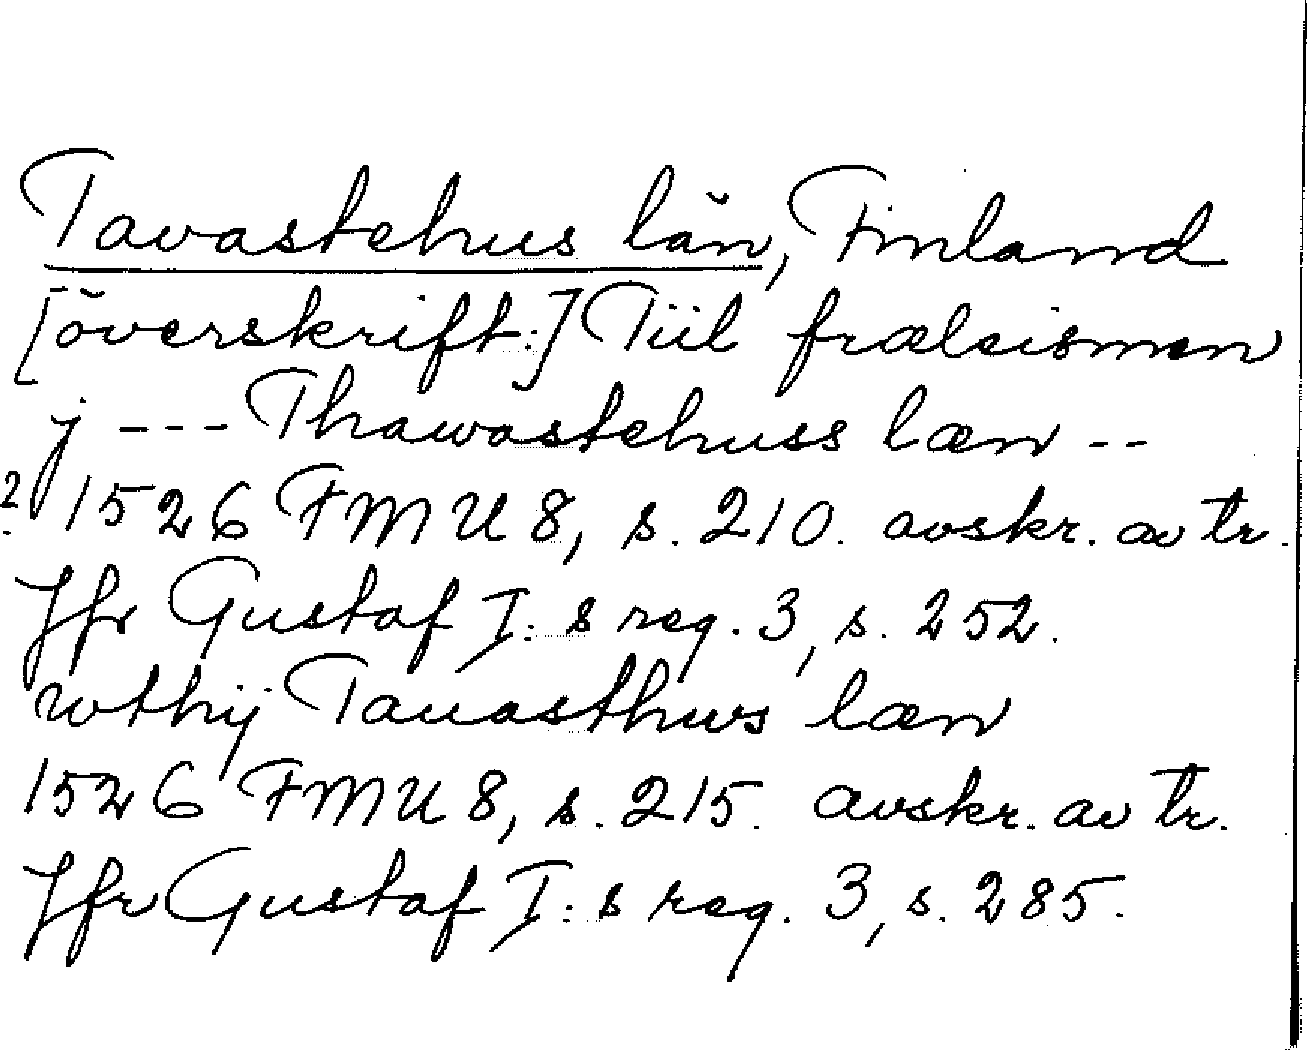 Tavastehus län, Finland
[överskrift:] Tiil frælsismen
j --- Thawastehuss læn --
2. 1526 FMU 8, s. 210. avskr. av tr.
Jfr Gustaf I:s reg. 3, s. 252.
wthij Tauasthws læn
1526 FMU 8, s. 215. avskr. av tr.
Jfr Gustaf I:s reg. 3, s. 285.